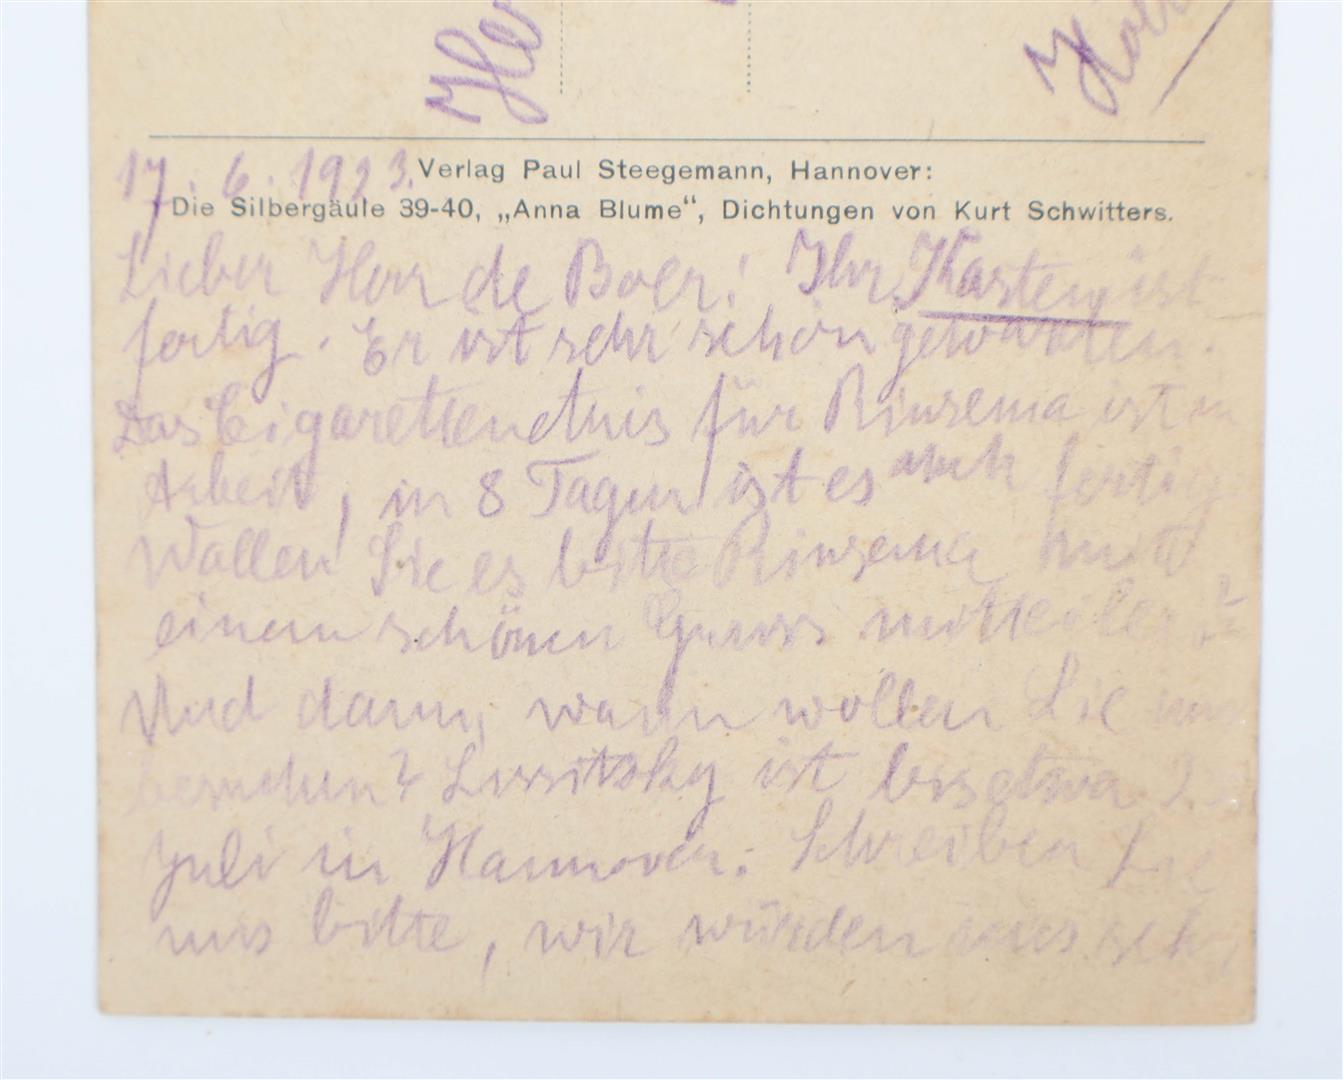 17. 6. 1923.
Verlag Paul Steegemann, Hannover:
Die Silbergäule 39-40, „Anna Blume“, Dichtungen von Kurt Schwitters.
Lieber Herr de Boer! Ihr Kasten ist
fertig. Er ist sehr schön geworden.
Das Cigarettenetuis für Rinsema ist in
Arbeit, in 8 Tagen ist es auch fertig
Wollen Sie es bitte Rinsema mit
einem schönen Gruss mitteilen?
Und dann, wann wollen Sie uns
besuchen? Lissitzky ist bis etwa
Juli in Hannover. Schreiben Sie
uns bitte, wir würden uns sehr